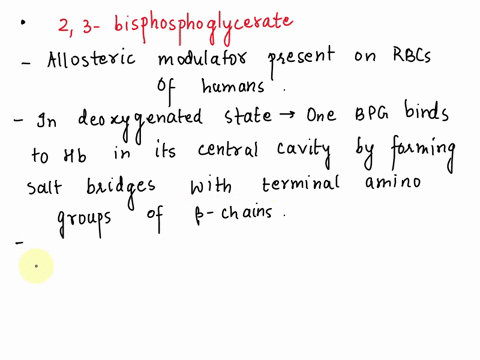 • 2, 3- bisphosphoglycerate
- Allosteric modulator present on RBCs
of humans.
- In deoxygenated state → One BPG binds
to Hb in its central cavity by forming
salt bridges with terminal amino
groups of β-chains.
-